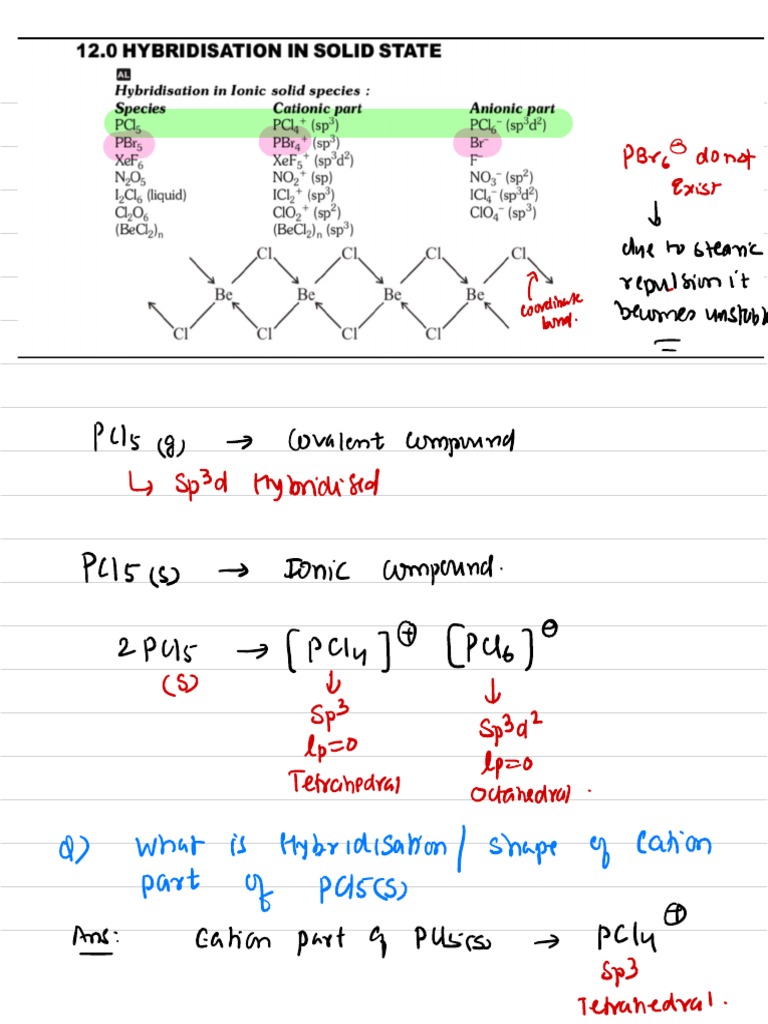 12.0 HYBRIDISATION IN SOLID STATE
AL
Hybridisation in Ionic solid species :
Species Cationic part Anionic part
PCl₅ PCl₄⁺ (sp³) PCl₆⁻ (sp³d²)
PBr₅ PBr₄⁺ (sp³) Br⁻
XeF₆ XeF₅⁺ (sp³d²) F⁻
N₂O₅ NO₂⁺ (sp) NO₃⁻ (sp²)
I₂Cl₆ (liquid) ICl₂⁺ (sp³) ICl₄⁻ (sp³d²)
Cl₂O₆ ClO₂⁺ (sp²) ClO₄⁻ (sp³)
(BeCl₂)ₙ (BeCl₂)ₙ (sp³)
PBr₆⊖ do not
Exist
↓
due to stearic
repulsion it
becomes unstabl
Cl Cl Cl Cl
Be Be Be Be
Cl Cl Cl Cl
coordinate
bond.
PCl₅ (g) → Covalent compound
↳ Sp³d Hybridised
PCl₅ (s) → Ionic compound.
2 PCl₅ → [PCl₄]⊕ [PCl₆]⊖
(s) ↓ ↓
Sp³ Sp³d²
lp=0 lp=0
Tetrahedral Octahedral.
Q) What is Hybridisation / shape of Cation
part of PCl₅(s)
Ans: Cation part of PCl₅(s) → PCl₄⊕
Sp3
Tetrahedral.